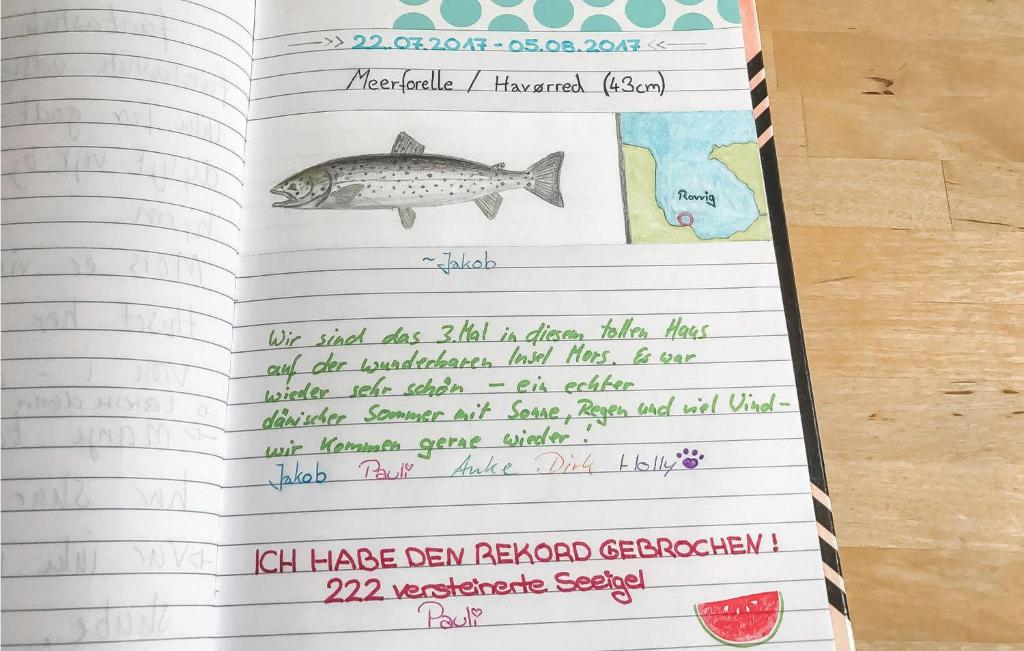 22.07.2017 - 05.08.2017
Meerforelle / Havørred (43cm)
Rovvig
~Jakob
Wir sind das 3. Mal in diesem tollen Haus
auf der wunderbaren Insel Mors. Es war
wieder sehr schön – ein echter
dänischer Sommer mit Sonne, Regen und viel Wind –
wir kommen gerne wieder!
Jakob Pauli Anke Dirk Holly
ICH HABE DEN REKORD GEBROCHEN!
222 versteinerte Seeigel
Pauli